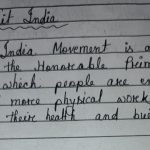 it India
India Movement is a
the Honorable Prim
which people are en
more physical work
their health and bui